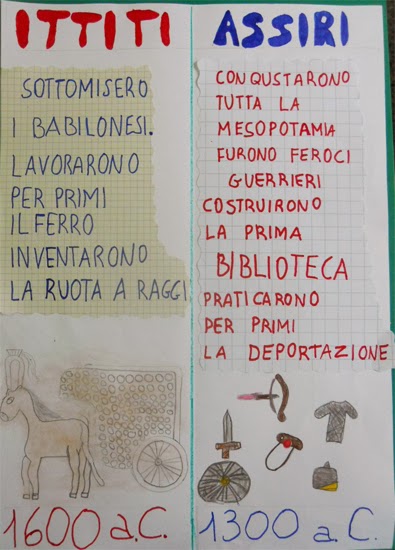 ITTITI
SOTTOMISERO
I BABILONESI.
LAVORARONO
PER PRIMI
IL FERRO
INVENTARONO
LA RUOTA A RAGGI
1600 a.C.
ASSIRI
CONQUSTARONO
TUTTA LA
MESOPOTAMIA
FURONO FEROCI
GUERRIERI
COSTRUIRONO
LA PRIMA
BIBLIOTECA
PRATICARONO
PER PRIMI
LA DEPORTAZIONE
1300 a.C.